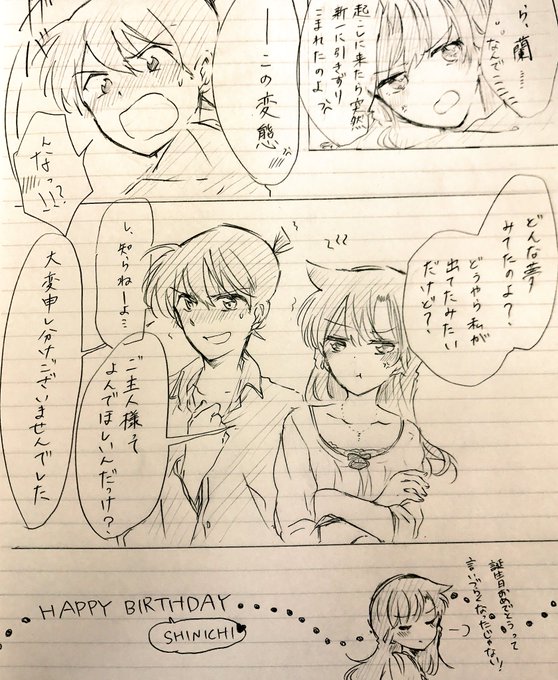 ら、蘭……
なんでここに
起こしに来たら突然
新一に引きずり
こまれたのよっ
ーこの変態っ
んなっ…!?
どんな夢
みてたのよ？
どうやら私が
出てたみたい
だけど？
し、知らねーよ…
ご主人様って
よんでほしいんだっけ？
大変申し分けございませんでした
誕生日おめでとうって
言いづらくなったじゃない！
HAPPY BIRTHDAY
SHINICHI